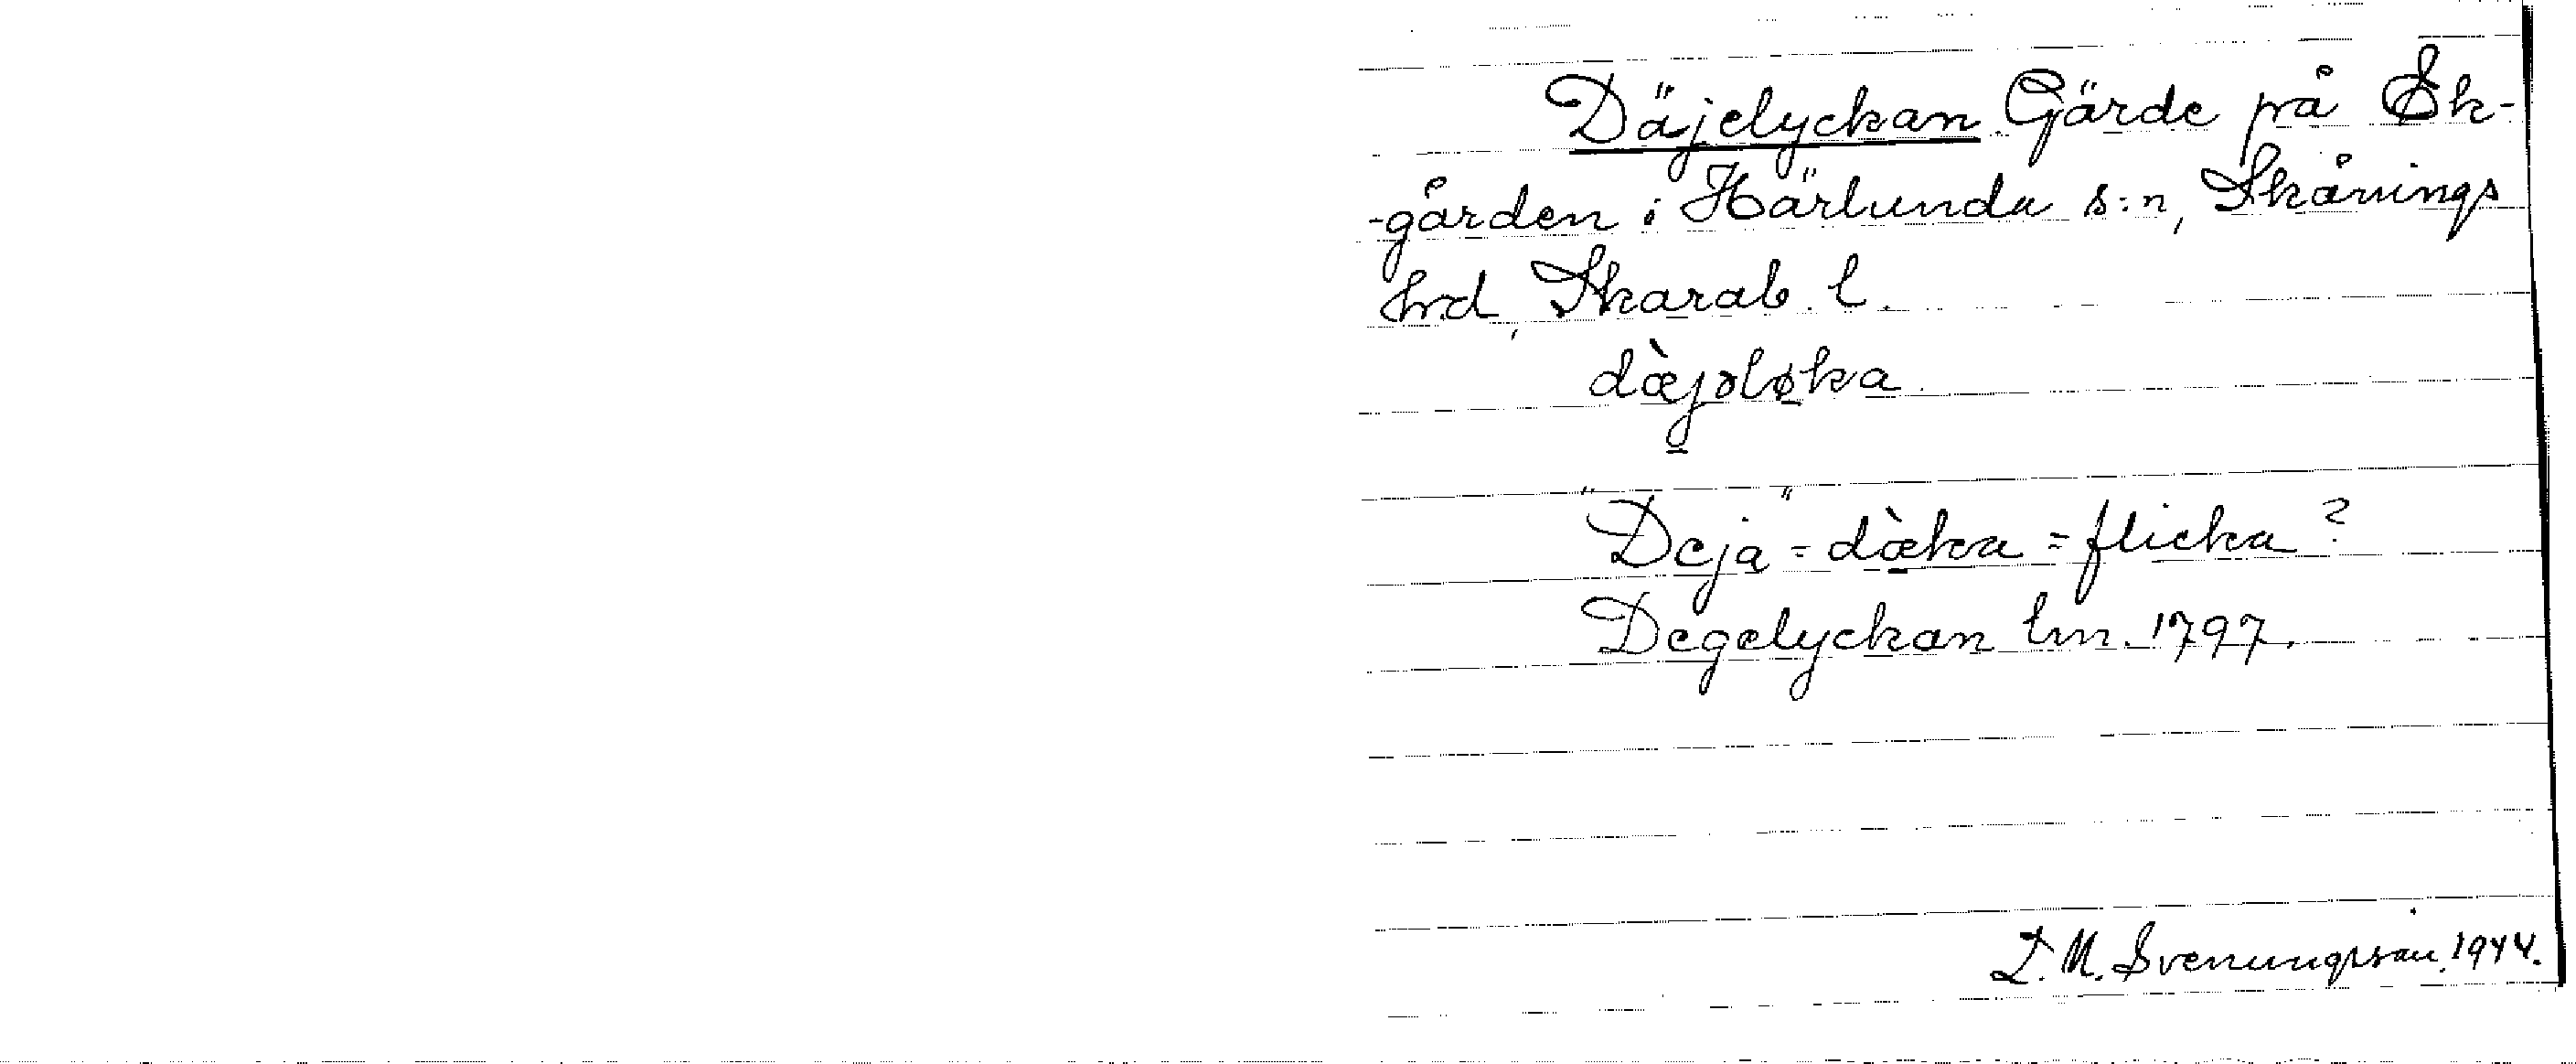 Däjelyckan Gärde på Ek-
-gården i Härlunda s:n, Skånings
hrd, Skarab. l.
dæ̀jəløka
"Deja" = dæ̀ka = flicka?
Degelyckan lm. 1797.
L. M. Svenungsson 1944.